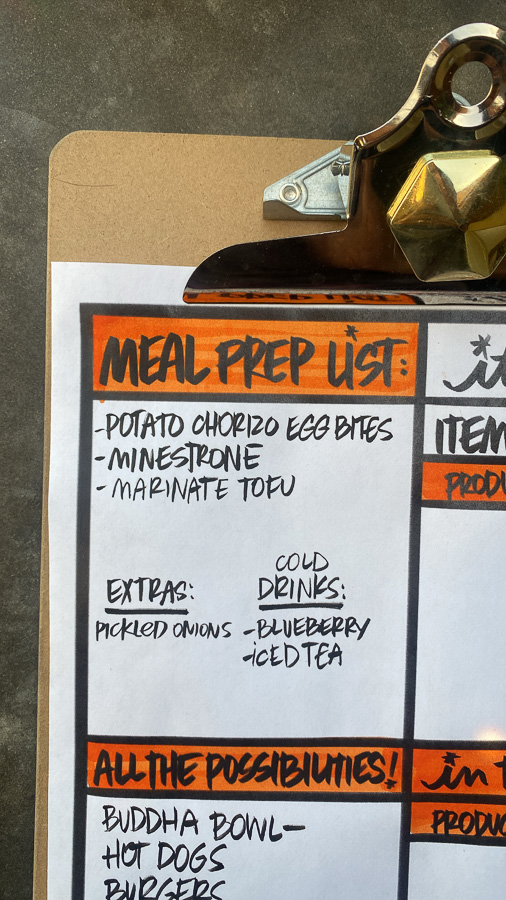 MEAL PREP LIST:
-POTATO CHORIZO EGG BITES
-MINESTRONE
-MARINATE TOFU
EXTRAS:
PICKLED ONIONS
COLD
DRINKS:
-BLUEBERRY
-ICED TEA
ALL THE POSSIBILITIES!
BUDDHA BOWL-
HOT DOGS
BURGERS
ITEM